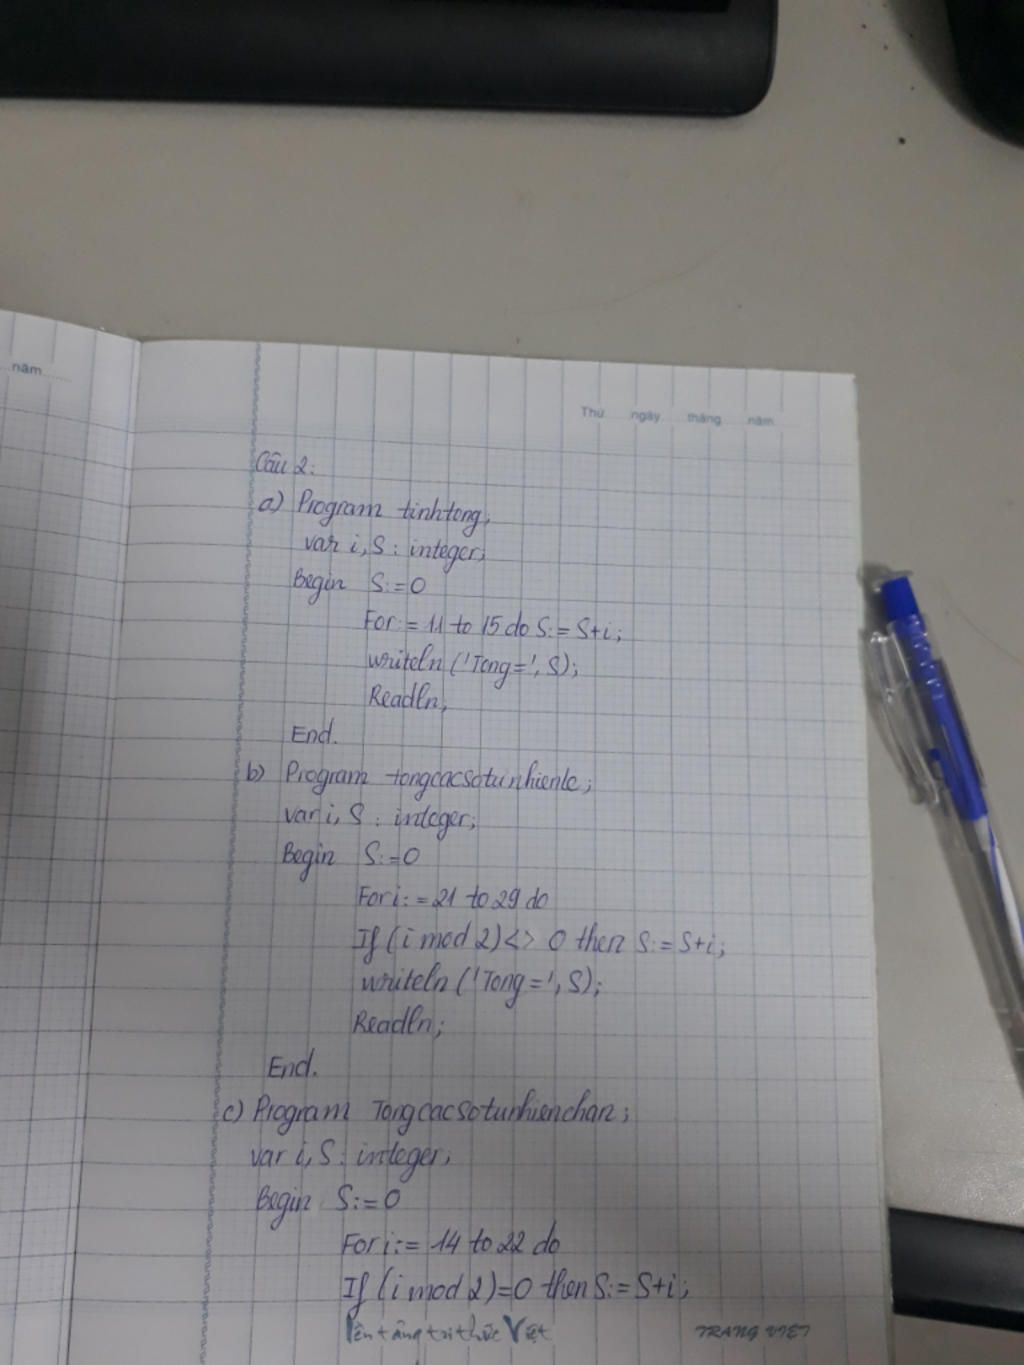 năm
Thứ ngày tháng năm
Câu 2:
a) Program tinhtong;
var i, S : integer;
Begin S:=0
For := 11 to 15 do S:= S+i;
writeln ('Tong=', S);
Readln;
End.
b) Program tongcacsotunhienle;
var i, S : integer;
Begin S:=0
For i:= 21 to 29 do
If (i mod 2) <> 0 then S:= S+i;
writeln ('Tong=', S);
Readln;
End.
c) Program Tongcacsotunhienchan;
var i, S : integer;
Begin S:=0
For i:= 14 to 22 do
If (i mod 2)=0 then S:= S+i;
tảng tri thức Việt
TRANG VIET